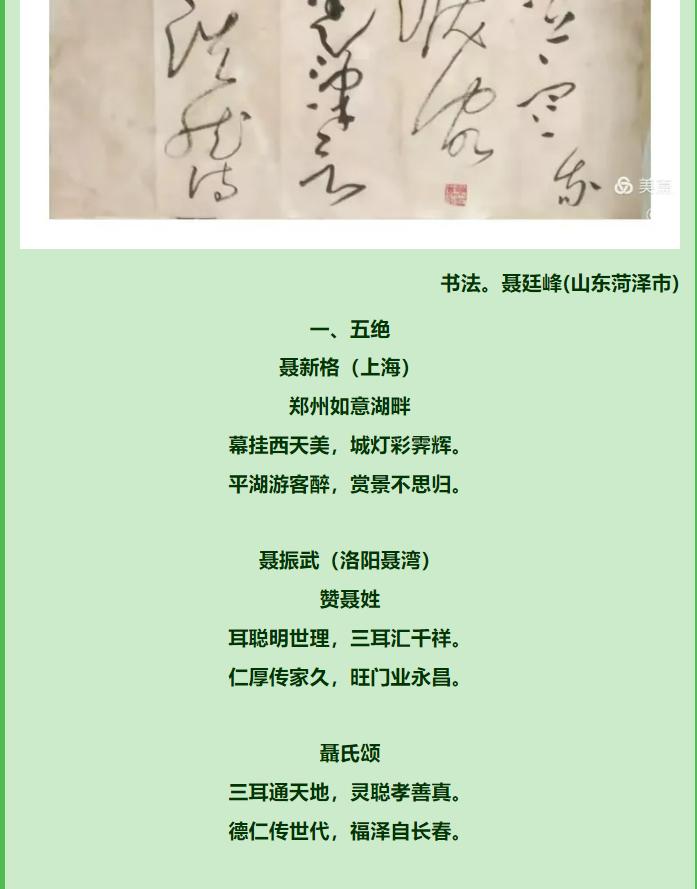 美篇
书法。聂廷峰(山东菏泽市)
一、五绝
聂新格（上海）
郑州如意湖畔
幕挂西天美，城灯彩霁辉。
平湖游客醉，赏景不思归。
聂振武（洛阳聂湾）
赞聂姓
耳聪明世理，三耳汇千祥。
仁厚传家久，旺门业永昌。
聶氏颂
三耳通天地，灵聪孝善真。
德仁传世代，福泽自长春。